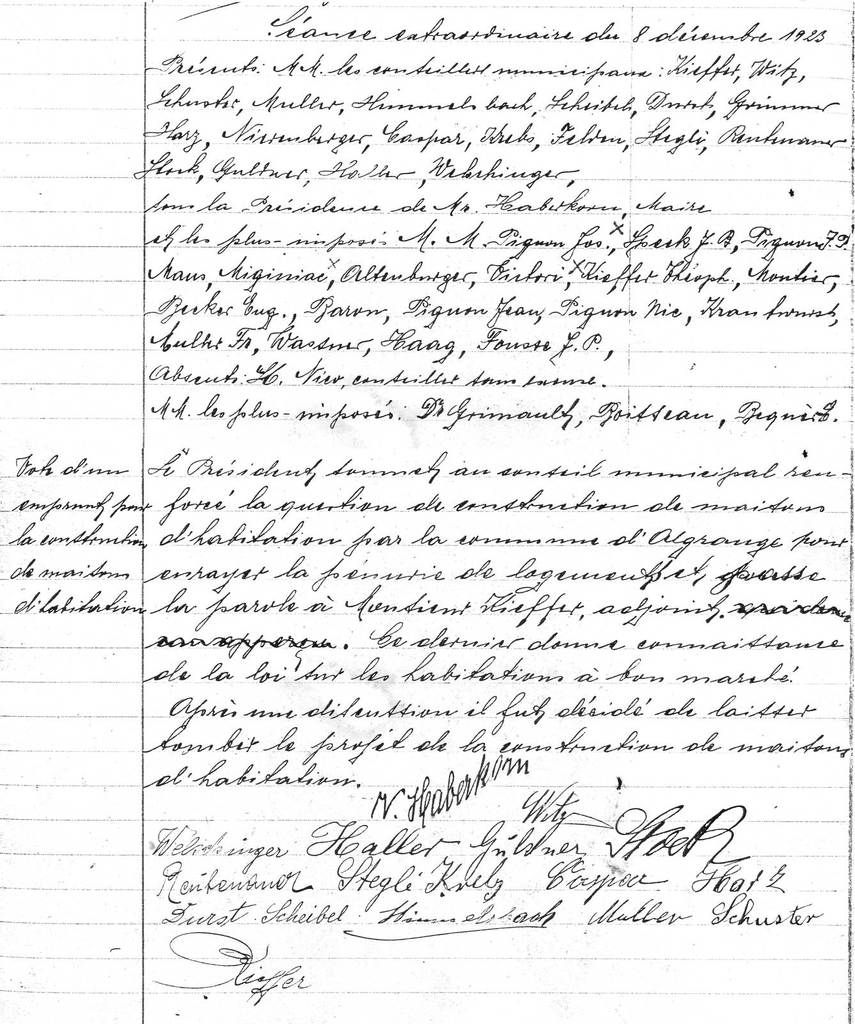 Séance extraordinaire du 8 décembre 1923
Présents: MM. les conseillers municipaux: Kieffer, Witz,
Schuster, Muller, Himmelsbach, Scheibel, Durst, Grimmer
Harz, Nierenberger, Caspar, Krebs, Felden, Steglé, Reutenauer
Stock, Guldner, Haller, Welschinger,
sous la Présidence de Mr. Haberkorn, Maire
et les plus-imposés M. M. Pignon Jos., Speck J. B, Pignon J. P.
Maus, Miginiac, Altenburger, Victori, Kieffer Théoph., Montier,
Becker Eug., Baron, Pignon Jean, Pignon Nic, Krautwurst,
Muller Fr, Wastner, Haag, Fousse J. P.,
Absents: H. Nico, conseiller sans excuse.
MM. les plus-imposés: Dr Grimault, Boitteau, Bequer E.
Vote d'un
emprunt pour
la construction
de maisons
d'habitation
Le Président soumet au conseil municipal ren-
forcé la question de construction de maisons
d'habitation par la commune d'Algrange pour
enrayer la pénurie de logement et passe
la parole à Monsieur Kieffer, adjoint.
. Ce dernier donne connaissance
de la loi sur les habitations à bon marché.
Après une discussion il fut décidé de laisser
tomber le projet de la construction de maisons
d'habitation.
N. Haberkorn
Witz
Welschinger Haller Guldner Stock
Reutenauer Steglé Krebs Caspar Harz
Durst Scheibel Himmelsbach Muller Schuster
Kieffer